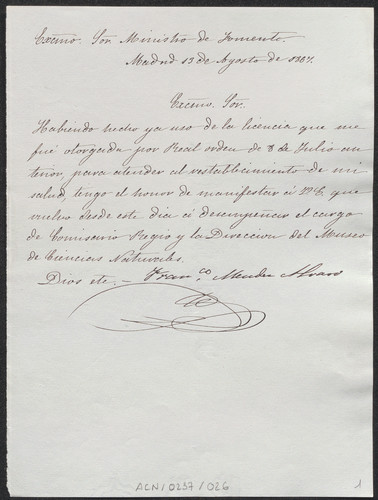 Excmo. Sor. Ministro de Fomento.
Madrid 13 de Agosto de 1867.
Excmo. Sor.
Habiendo hecho ya uso de la licencia que me
fué otorgada por Real orden de 8 de Julio an
terior, para atender al restablecimiento de mi
salud, tengo el honor de manifestar á V.E. que
vuelvo desde este dia á desempeñar el cargo
de Comisario Regio y la Direccion del Museo
de Ciencias Naturales.
Dios etc. — Franco. Mendez Alvaro
ACN/0237/026
1